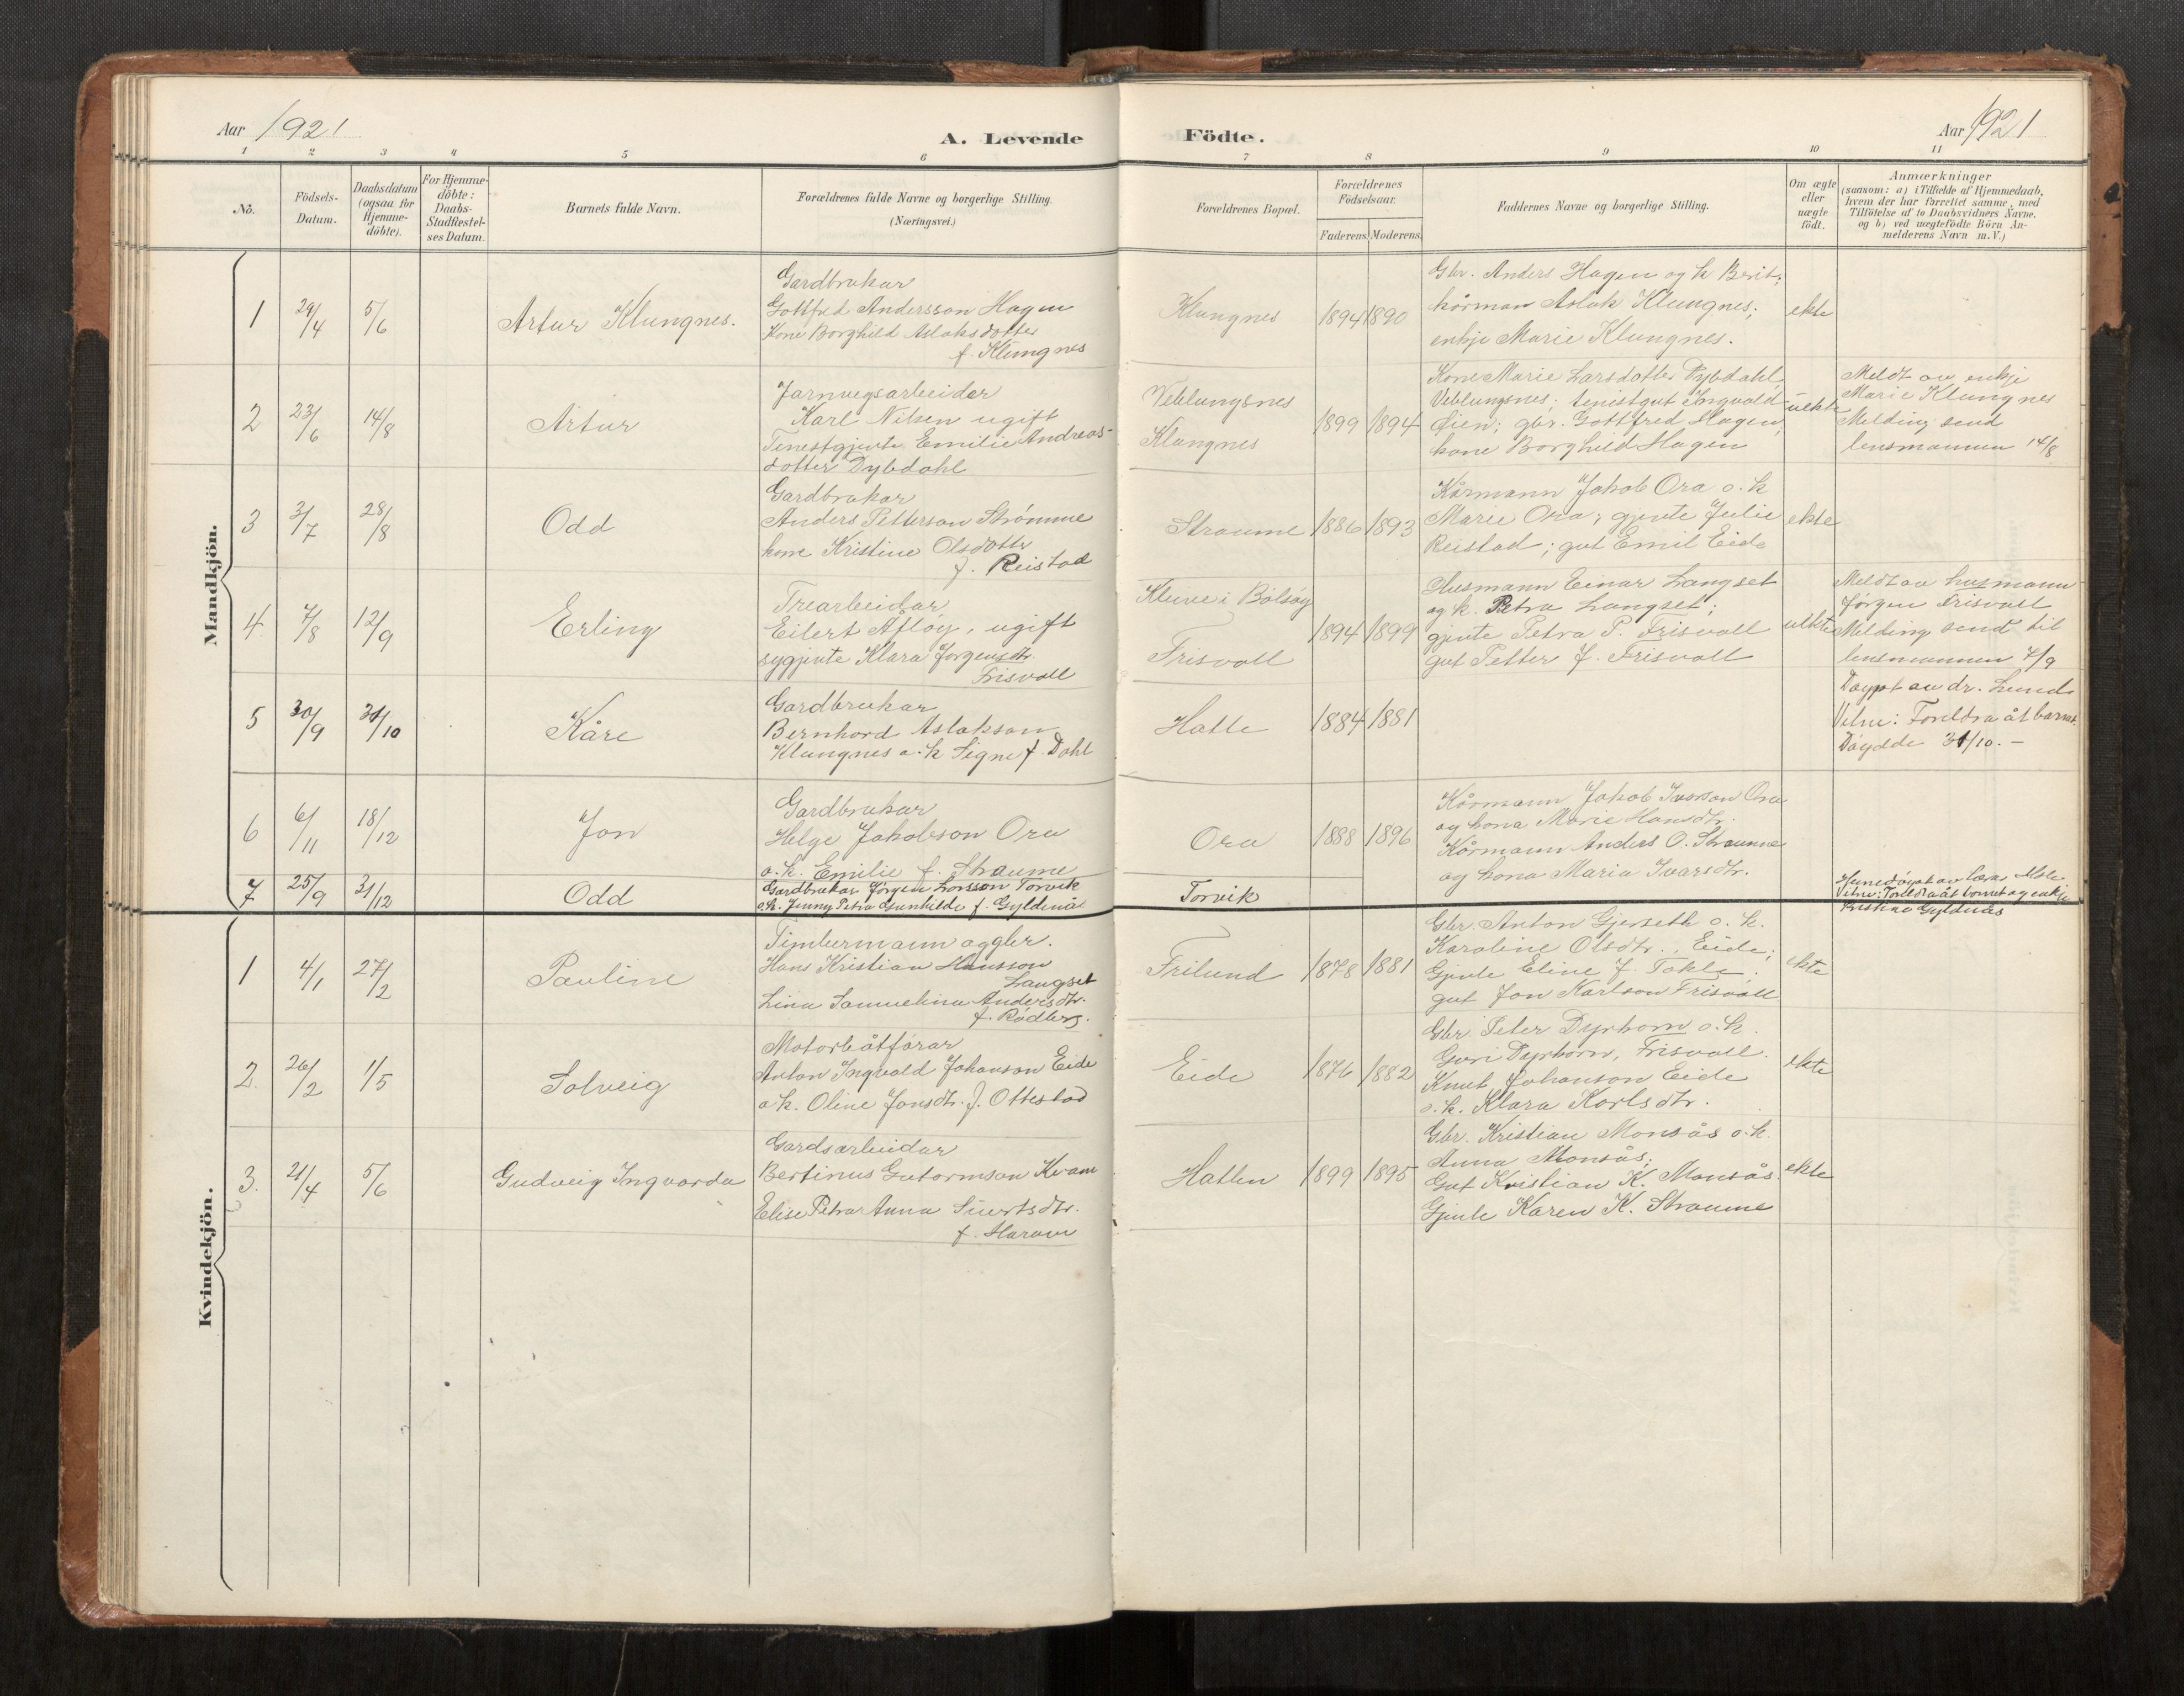 Aar 1921
A. Levende Födte.
Aar 1921
1 2 3 4 5 6 7 8 9 10 11
No.
Födsels-
Datum.
Daabsdatum
(ogsaa for
Hjemme-
döbte).
For Hjemme-
döbte:
Daabs-
Stadfæstel-
ses Datum.
Barnets fulde Navn.
Forældrenes fulde Navne og borgerlige Stilling.
(Næringsvei.)
Forældrenes Bopæl.
Forældrenes
Födselsaar.
Faderens. Moderens.
Faddernes Navne og borgerlige Stilling.
Om ægte
eller
uægte
födt.
Anmærkninger
(saasom: a) i Tilfælde af Hjemmedaab,
hvem der har forrettet samme, med
Tilföielse af to Daabsvidners Navne,
og b) ved uægtefödte Börn An-
melderens Navn m. V.)
Mandkjön.
1 29/4 5/6 Artur Klungnes.
Gardbrukar
Gottfred Andersson Hagen
Kone Borghild Aslaksdotter
f. Klungnes
Klungnes 1894 1890
Gbr. Anders Hagen og k Berit;
kårman Aslak Klungnes;
enkje Marie Klungnes.
ekte
2 23/6 14/8 Artur
Jarnvegsarbeider
Karl Nilsen ugift
Tenestgjente Emilie Andreas-
dotter Dybdahl
Veblungsnes
Klungnes
1899 1894
Kone Marie Larsdotter Dybdahl,
Veblungsnes; tenestgut Ingvald
Øien; gbr. Gottfred Hagen,
kone Borghild Hagen
uekte
Meldt av enkje
Marie Klungnes
Melding send
lensmannen 14/8
3 3/7 28/8 Odd
Gardbrukar
Anders Petterson Strømme
kone Kristine Olsdotter
f. Reistad
Straume 1886 1893
Kårmann Jakob Ora o. k
Marie Ora; gjente Julie
Reistad; gut Emil Eide
ekte
4. 7/8 12/9 Erling
Trearbeidar
Eilert Afløy, ugift
sygjente Klara Jørgensdtr.
Frisvoll
Kleive i Bolsøy
Frisvoll
1894 1899
Husmann Einar Langset
og k. Petra Langset;
gjente Petra P. Frisvoll
gut Petter J. Frisvoll
uekte
Meldt av husmann
Jørgen Frisvoll
Melding send til
lensmannen 7/9
5 30/9 31/10 Kåre
Gardbrukar
Bernhard Aslakson
Klungnes o. k Signe f. Dahl
Hatle 1884 1881
Døypt av dr. Lund.
Vitne: Foreldra åt barnet.
Døydde 31/10. —
6 6/11 18/12 Jon
Gardbrukar
Helge Jakobson Ora
o. k. Emilie f. Straume
Ora 1888 1896
Kårmann Jakob Ivarson Ora
og kona Marie Hansdtr.
Kårmann Anders O. Straume
og kona Maria Ivarsdtr.
7 25/9 31/12 Odd
Gardbrukar Jørgen Larsson Torvik
o.k. Jenny Petra Gunhilde f. Gyldenås
Torvik
Heimedøypt av
Vitne: Foreldra åt barnet og enkje
Kristine Gyldnås
Kvindekjön.
1 4/1 27/2 Pauline
Timbermann oggbr.
Hans Kristian Hansson
Langset
Lina Samuelina Andersdtr.
f. Rødberg.
Frilund 1878 1881
Gbr. Anton Gjerseth o. k.
Karoline Olsdtr., Eide;
Gjente Eline J. Takle;
gut Jon Karlson Frisvoll
ekte
2. 26/2 1/5 Solveig
Motorbåtførar
Anton Ingvald Johanson Eide
o. k. Oline Jonsdtr. f. Ottestad
Eide 1876 1882
Gbr. Peter Dyrhorn o. k.
Guri Dyrhorn, Frisvoll.
Knut Johanson Eide
o. k. Klara Karlsdtr.
ekte
3. 21/4 5/6 Gudveig Ingvarda
Gardsarbeidar
Bertinus Gutormson Kvam
Elise Petra Anna Siversdtr.
f. Haram
Hatlen 1899 1895
Gbr. Kristian Monsås o. k.
Anna Monsås;
Gut Kristian K. Monsås
Gjente Karen K. Straume
ekte